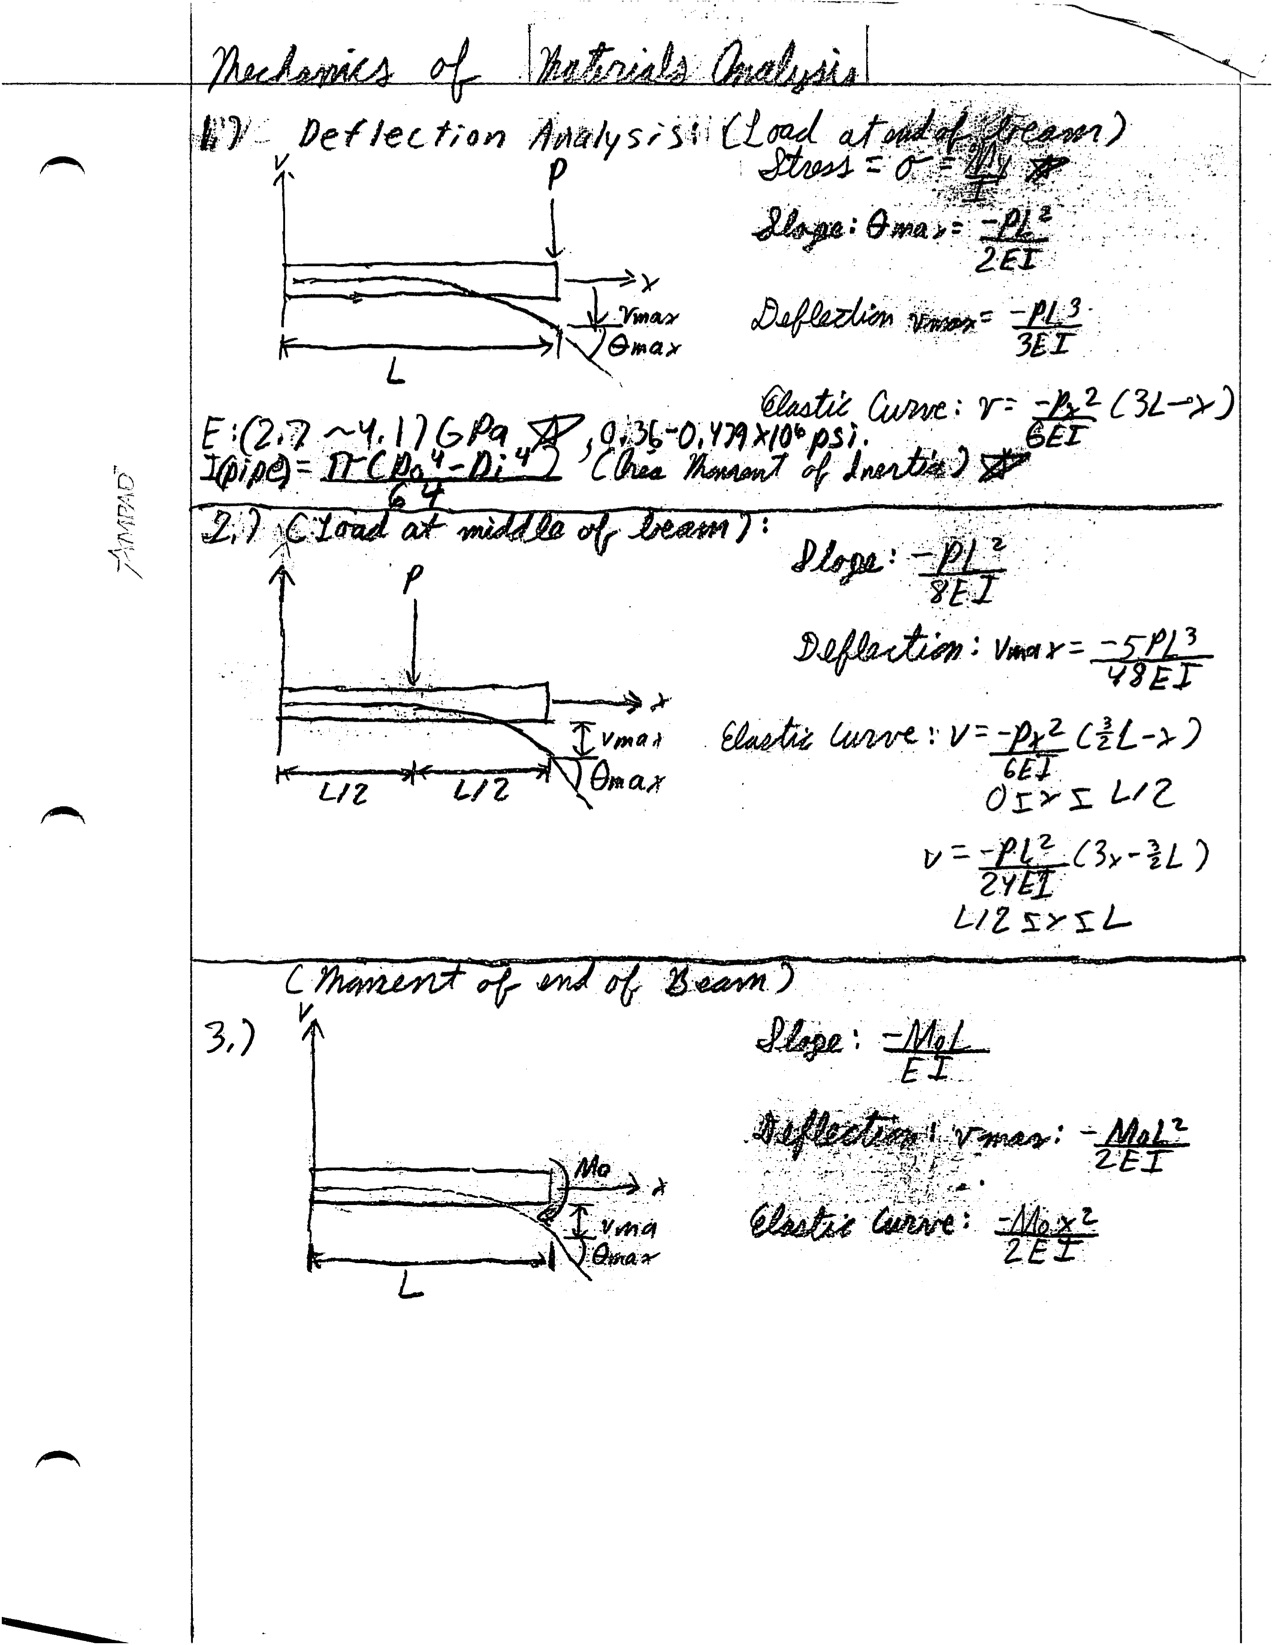 Mechanics of Materials Analysis
1.) Deflection Analysis: (Load at end of beam)
Stress = σ = My/I
V
P
Slope: θmax = -PL²/2EI
x
vmax
θmax
L
Deflection vmax = -PL³/3EI
Elastic Curve: v = -Px²/6EI (3L-x)
E: (2.7 ~ 4.1) GPa ☆, 0.36-0.479x10⁶ psi.
I(pipe) = π(Do⁴-Di⁴)/64 (Area Moment of Inertia) ☆
AMPAD
2.) (Load at middle of beam):
Slope: -PL²/8EI
P
Deflection: vmax = -5PL³/48EI
x
vmax
θmax
L/2 L/2
Elastic Curve: v = -Px²/6EI (3/2L-x)
0 ≤ x ≤ L/2
v = -PL²/24EI (3x-3/2L)
L/2 ≤ x ≤ L
(Moment of end of Beam)
3.)
V
Slope: -M₀L/EI
Deflection: vmax: -M₀L²/2EI
M₀
x
vma
θmax
L
Elastic Curve: -M₀x²/2EI